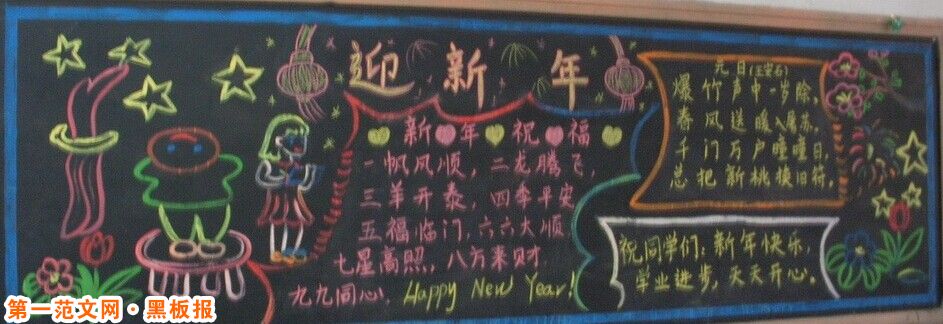 迎新年
新年祝福
一帆风顺,二龙腾飞,
三羊开泰,四季平安
五福临门,六六大顺
七星高照,八方来财.
九九同心, Happy New Year!
元日(王安石)
爆竹声中一岁除,
春风送暖入屠苏.
千门万户曈曈日,
总把新桃换旧符.
祝同学们:新年快乐,
学业进步,天天开心.
第一范文网·黑板报